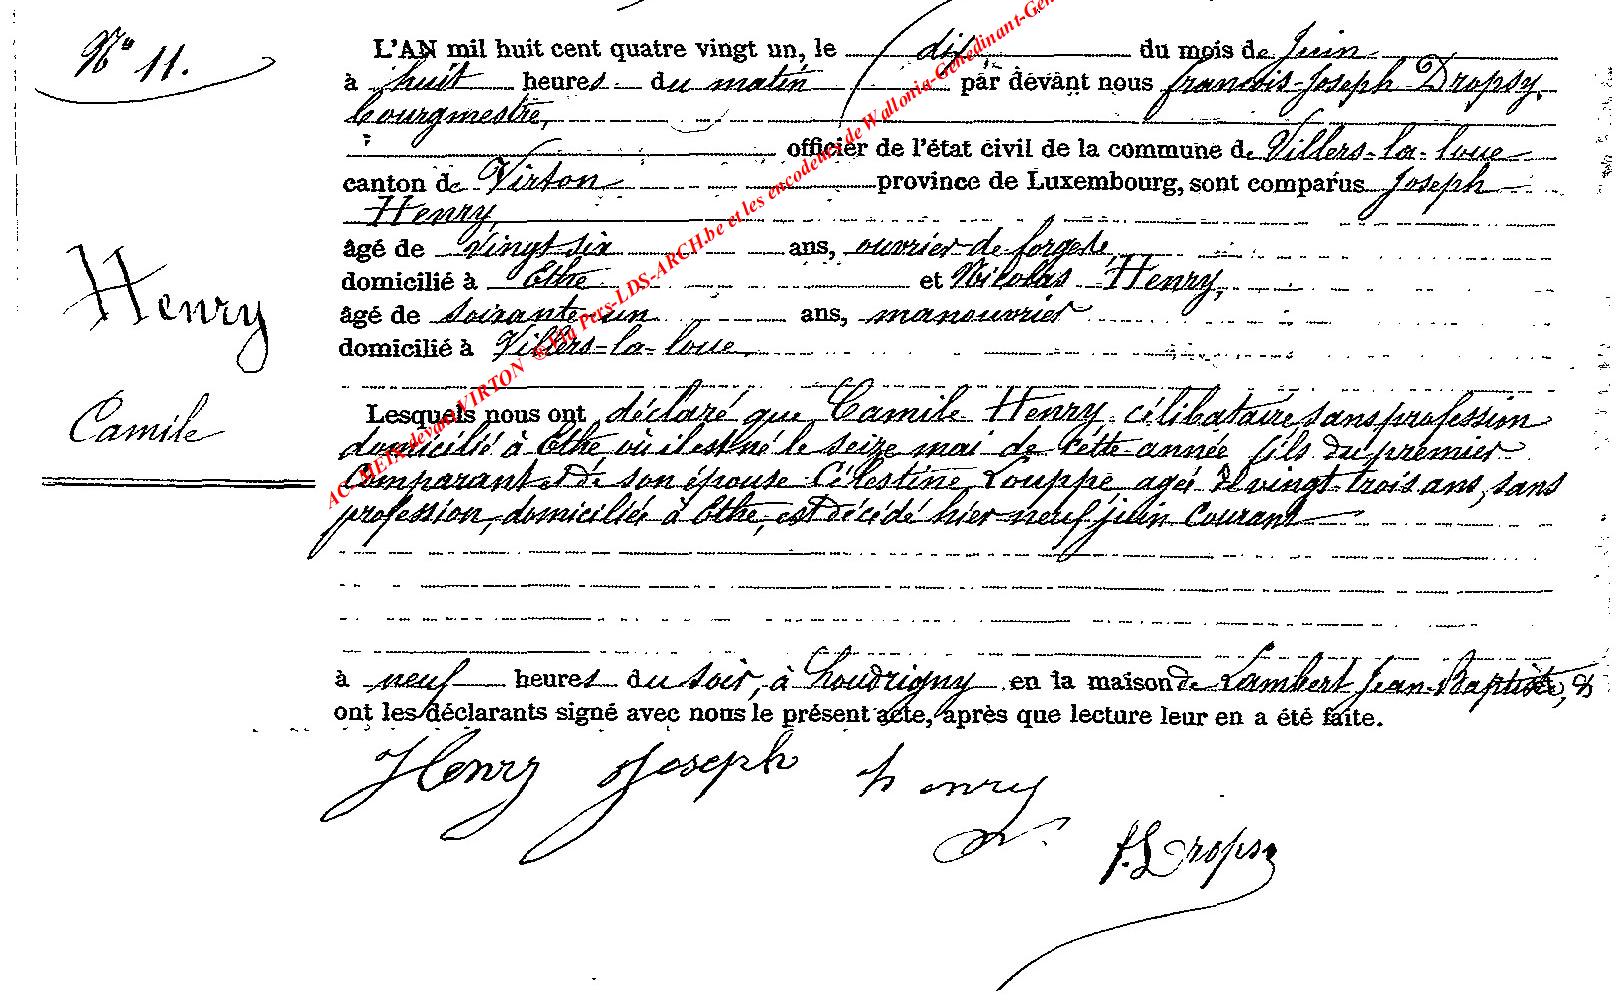 N° 11.
L'AN mil huit cent quatre vingt un, le dix du mois de Juin
à huit heures du matin par devant nous françois-Joseph Dropsy,
bourgmestre,
officier de l'état civil de la commune de Villers-la-loue
canton de Virton province de Luxembourg, sont comparus Joseph
Henry,
âgé de vingt six ans, ouvrier de forges,
domicilié à Ethe et Nicolas Henry,
âgé de soixante-un ans, manouvrier
domicilié à Villers-la-loue
Henry
Camile
Lesquels nous ont déclaré que Camile Henry, célibataire sans profession
domicilié à Ethe où il est né le seize mai de cette année fils du premier
Comparant et de son épouse Célestine Louppe, agée de vingt-trois ans, sans
profession, domiciliée à Ethe, est décédé hier neuf juin courant
à neuf heures du soir, à houdrigny en la maison de Lambert Jean-Baptiste, &
ont les déclarants signé avec nous le présent acte, après que lecture leur en a été faite.
Henry Joseph henry
n.
f. Dropsy
AC-MEIX-devant-VIRTON @ Via Pers-LDS-ARCH.be et les encodeurs de Wallonia-Genedinant-Gen